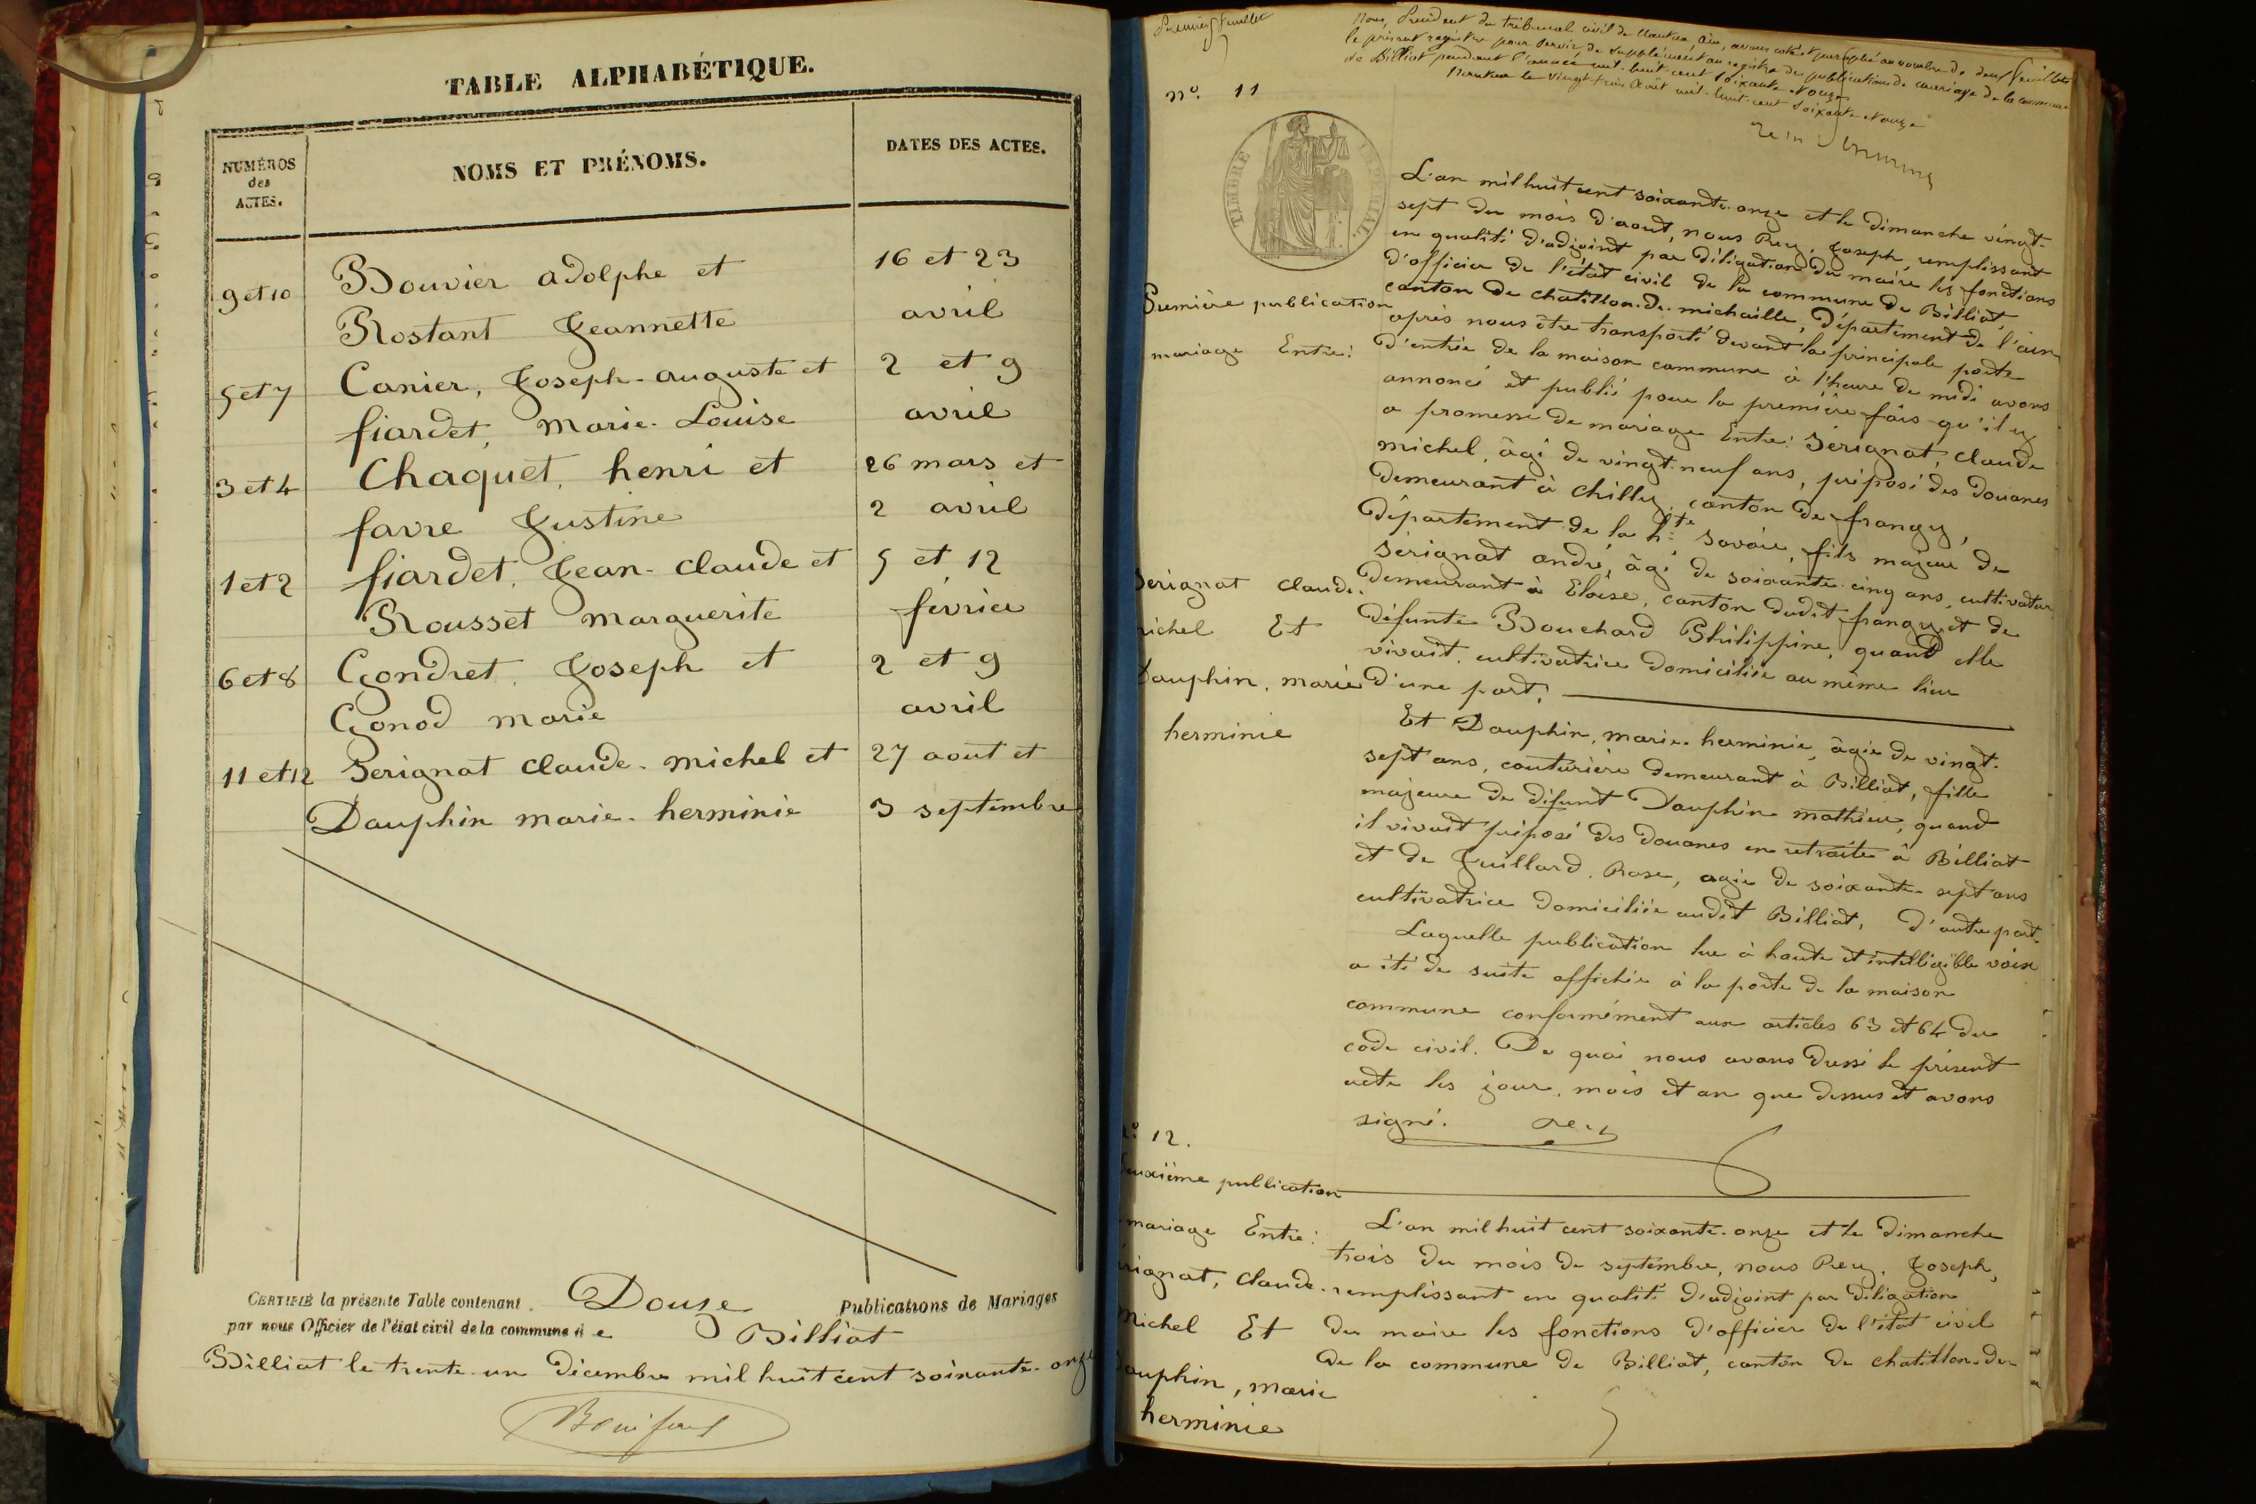 TABLE ALPHABÉTIQUE.
NUMÉROS
des
ACTES.
NOMS ET PRÉNOMS.
DATES DES ACTES.
9 et 10
Bouvier adolphe et
16 et 23
Rostant Jeannette
avril
5 et 7
Canier, Joseph-auguste et
2 et 9
fiardet, marie-Louise
avril
3 et 4
Chaquet, henri et
26 mars et
favre Justine
2 avril
1 et 2
fiardet, Jean-claude et
5 et 12
Rousset marguerite
février
6 et 8
Gondret, Joseph et
2 et 9
Gonod marie
avril
11 et 12
Serignat claude-michel et
27 aout et
Dauphin marie-herminie
3 septembre
CERTIFIÉ la présente Table contenant Douze Publications de Mariages
par nous Officier de l'état civil de la commune de Billiat
Billiat le trente-un décembre mil huit cent soixante-onze
Premier feuillet
Nous, Président du tribunal civil de Nantua, Ain, avons coté et paraphé au nombre de deux feuillets
le présent registre pour servir de supplément au registre des publications de mariage de la commune
de Billiat pendant l'année mil-huit-cent soixante et onze
Nantua le vingt-trois Août mil-huit-cent soixante et onze
n°. 11
TIMBRE IMPÉRIAL.
Première publication
mariage Entre:
Serignat claude.
michel Et
Dauphin, marie
herminie
L'an mil huit cent soixante-onze et le dimanche vingt-
sept du mois d'aout, nous Rey, Joseph, remplissant
en qualité d'adjoint par déligation du maire les fonctions
d'officier de l'état civil de la commune de Billiat,
canton de chatillon-de-michaille, département de l'ain
après nous être transporté devant la principale porte
d'entrée de la maison commune à l'heure de midi avons
annoncé et publié pour la première fois qu'il y
a promesse de mariage Entre: Sérignat, claude
michel, âgé de vingt-neuf ans, préposé des douanes
demeurant à chilly, canton de frangy,
département de la hte savoie, fils majeur de
Sérignat andré, âgé de soixante-cinq ans, cultivateur
demeurant à Eloise, canton dudit frangy, et de
défunte Bouchard Philippine, quand elle
vivait, cultivatrice domiciliée au même lieu
d'une part;
Et Dauphin, marie-herminie, âgée de vingt-
sept ans, couturière demeurant à Billiat, fille
majeure de défunt Dauphin mathieu, quand
il vivait préposé des douanes en retraite à Billiat
et de Juillard, Rose, agée de soixante-sept ans
cultivatrice domiciliée audit Billiat, d'autre part.
Laquelle publication lue à haute et intelligible voix
a été de suite affichée à la porte de la maison
commune conformément aux articles 63 et 64 du
code civil. De quoi nous avons dressé le présent
acte les jour, mois et an que dessus et avons
signé. Rey
n° 12.
deuxième publication
mariage Entre:
Sérignat, claude-
michel Et
Dauphin, marie
herminie
L'an mil huit cent soixante-onze et le dimanche
trois du mois de septembre, nous Rey, Joseph,
remplissant en qualité d'adjoint par déligation
du maire les fonctions d'officier de l'état civil
de la commune de Billiat, canton de chatillon-de-